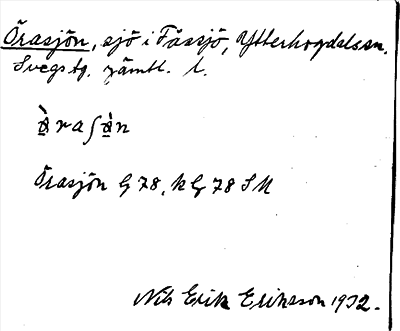 Örasjön, sjö i Fåssjö, Ytterhogdals sn.
Svegs tg. Jämtl. l.
Örasjön G 78, k G 78 S M
Nils Erik Eriksson 1932.